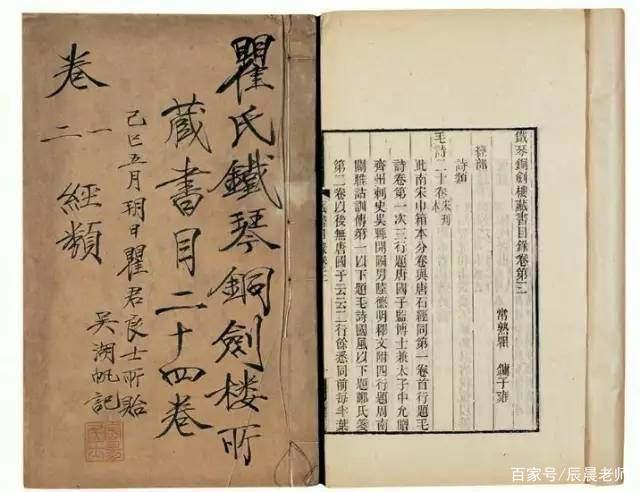 瞿氏鐵琴銅劍樓所
藏書目二十四卷
卷一二
經類
己巳五月朔日瞿君良士所貽
吳湖帆記
鐵琴銅劍樓藏書目錄卷第三
常熟瞿 鏞子雍
經部
詩類
毛詩二十卷 宋刊本
此南宋巾箱本分卷與唐石經同第一卷首行題毛
詩卷第一次三行題唐國子監博士兼太子中允贈
齊州刺史吳縣開國男陸德明釋文附四行題周南
關雎詁訓傳第一以下題毛詩國風以下題鄭氏箋
第二卷以後無唐國子云云二行餘悉同前每半葉
百家号/辰晨老师